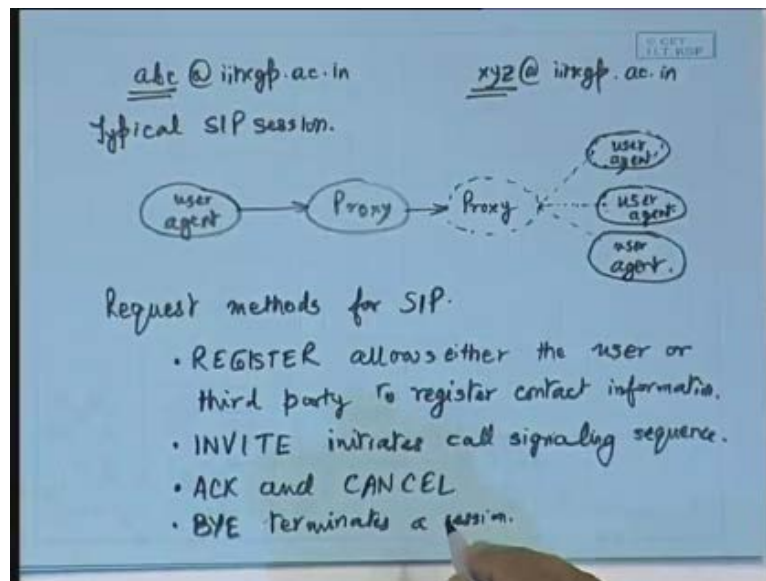 © CET
I.I.T. KGP
abc @ iitkgp.ac.in xyz @ iitkgp.ac.in
Typical SIP session.
user agent Proxy Proxy user agent
user agent
user agent.
Request methods for SIP.
• REGISTER allows either the user or
third party to register contact information.
• INVITE initiates call signaling sequence.
• ACK and CANCEL
• BYE terminates a session.